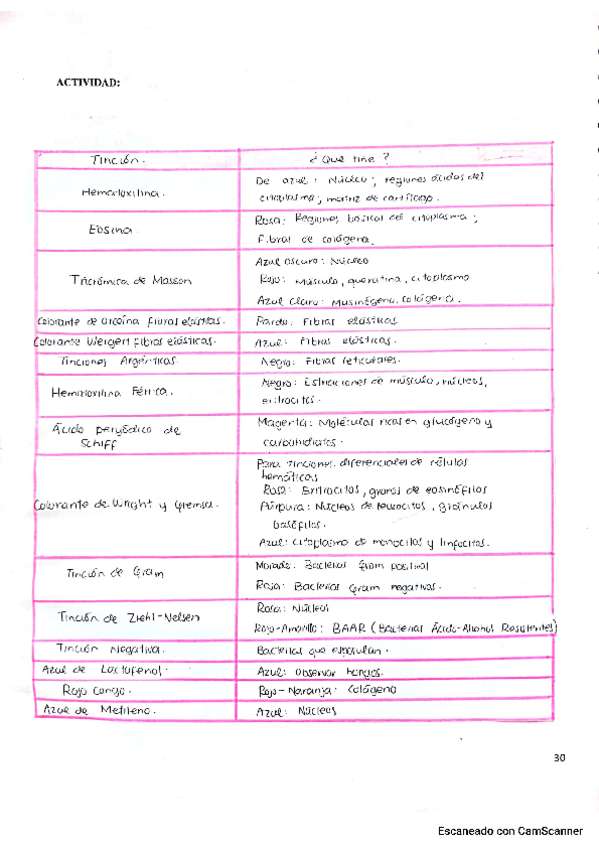 ACTIVIDAD:
Tinción. ¿Que tiñe?
Hematoxilina.
De azul: Núcleo; regiones ácidas del
citoplasma; matriz de cartílago.
Eosina.
Rosa: Regiones básicas del citoplasma;
Fibras de colágena.
Tricrómica de Masson
Azul oscuro: Núcleo
Rojo: Músculo, queratina, citoplasma
Azul claro: Musinógeno, colágena.
Colorante de orceína fibras elásticas. Pardo: Fibras elásticas
Colorante Weigert fibras elásticas. Azul: Fibras elásticas.
Tinciones Argénticas. Negro: Fibras reticulares.
Hematoxilina Férrica.
Negro: Estriaciones de músculo, núcleos,
eritrocitos.
Ácido peryódico de
Schiff
Magenta: Moléculas ricas en glucógeno y
carbohidratos.
Colorante de Wright y Giemsa.
Para tinciones diferenciales de células
hemáticas
Rosa: Eritrocitos, granos de eosinófilos
Púrpura: Núcleos de leucocitos, gránulos
basófilos.
Azul: Citoplasma de monocitos y linfocitos.
Tinción de Gram
Morado: Bacterias Gram positivas
Rojo: Bacterias Gram negativas.
Tinción de Ziehl-Nelsen
Rosa: Núcleos
Rojo-Amarillo: BAAR (Bacterias Ácido-Alcohol Resistentes)
Tinción Negativa. Bacterias que esporulan.
Azul de Lactofenol. Azul: Observar hongos.
Rojo Congo. Rojo-Naranja: Colágeno
Azul de Metileno. Azul: Núcleos
30
Escaneado con CamScanner